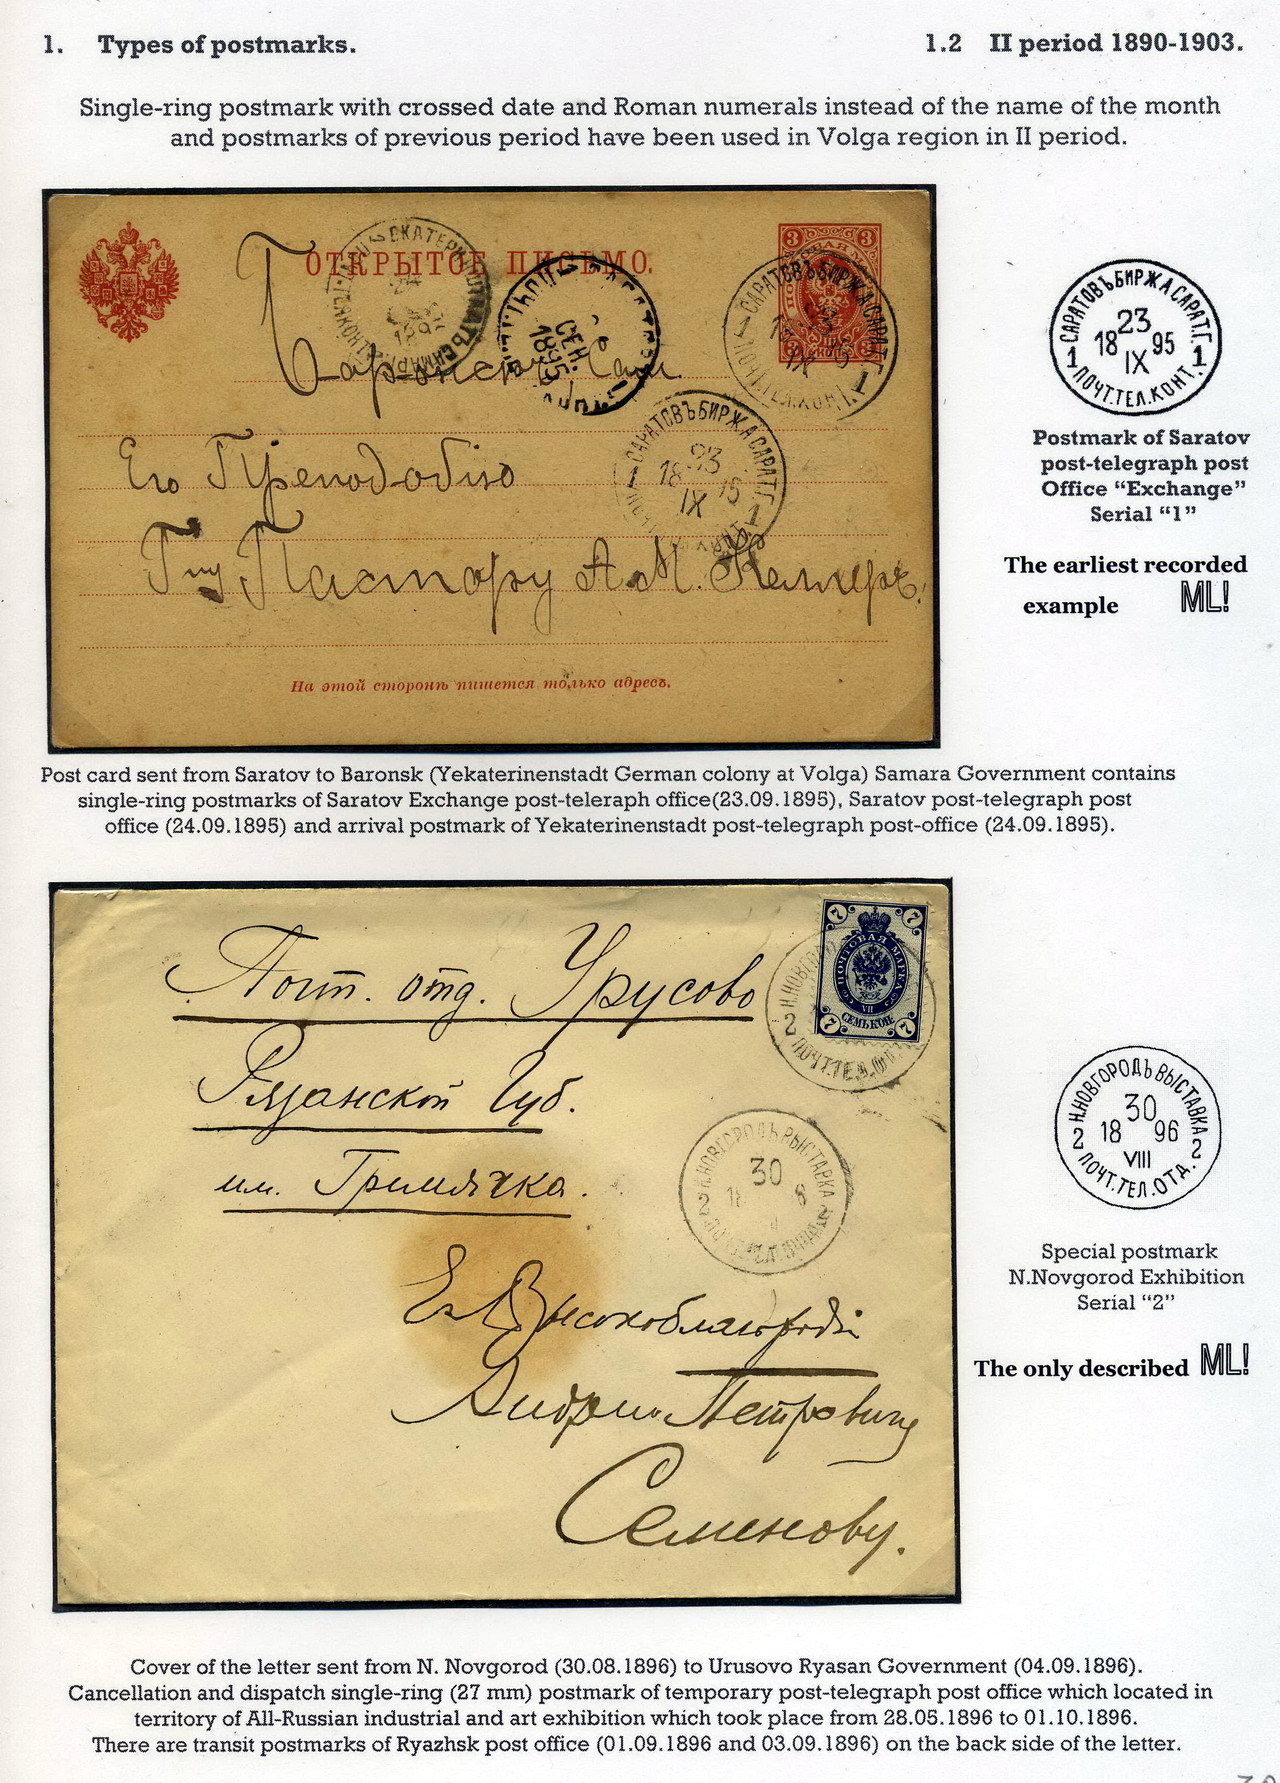 1. Types of postmarks. 1.2 II period 1890-1903.
Single-ring postmark with crossed date and Roman numerals instead of the name of the month
and postmarks of previous period have been used in Volga region in II period.
ОТКРЫТОЕ ПИСЬМО.
3 3
САРАТОВЪ БИРЖА САРАТ.Г.
1 ПОЧТ.ТЕЛ.КОНТ. 1
СЕН.
1895
САРАТОВЪ БИРЖА САРАТ.Г.
23
18 95
IX
Его Преподобію
Г-ну Пастору А.М. Келлеръ!
На этой сторонѣ пишется только адресъ.
САРАТОВЪ БИРЖА САРАТ.Г.
23
18 95
IX
1 ПОЧТ.ТЕЛ.КОНТ. 1
Postmark of Saratov
post-telegraph post
Office “Exchange”
Serial “1”
The earliest recorded
example ML!
Post card sent from Saratov to Baronsk (Yekaterinenstadt German colony at Volga) Samara Government contains
single-ring postmarks of Saratov Exchange post-teleraph office(23.09.1895), Saratov post-telegraph post
office (24.09.1895) and arrival postmark of Yekaterinenstadt post-telegraph post-office (24.09.1895).
7 7
ПОЧТОВАЯ МАРКА
VII
СЕМЬ КОП.
7 7
Почт. отд. Урусово
Рязанской Губ.
им. Гремячка.
Н.НОВГОРОДЪ ВЫСТАВКА
30
Его Высокоблагородію
Андрею Петровичу
Семенову.
Н.НОВГОРОДЪ ВЫСТАВКА
30
18 96
VIII
2 ПОЧТ.ТЕЛ.ОТД. 2
Special postmark
N.Novgorod Exhibition
Serial “2”
The only described ML!
Cover of the letter sent from N. Novgorod (30.08.1896) to Urusovo Ryasan Government (04.09.1896).
Cancellation and dispatch single-ring (27 mm) postmark of temporary post-telegraph post office which located in
territory of All-Russian industrial and art exhibition which took place from 28.05.1896 to 01.10.1896.
There are transit postmarks of Ryazhsk post office (01.09.1896 and 03.09.1896) on the back side of the letter.